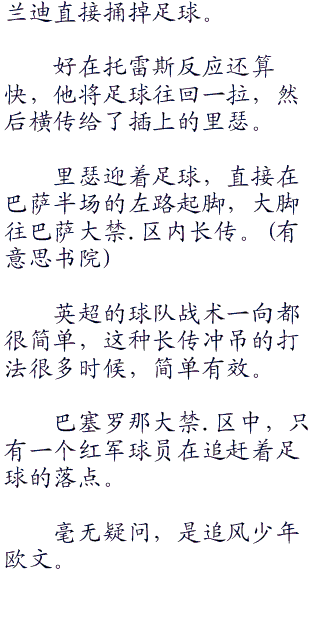 兰迪直接捅掉足球。
好在托雷斯反应还算
快，他将足球往回一拉，然
后横传给了插上的里瑟。
里瑟迎着足球，直接在
巴萨半场的左路起脚，大脚
往巴萨大禁.区内长传。（有
意思书院）
英超的球队战术一向都
很简单，这种长传冲吊的打
法很多时候，简单有效。
巴塞罗那大禁.区中，只
有一个红军球员在追赶着足
球的落点。
毫无疑问，是追风少年
欧文。